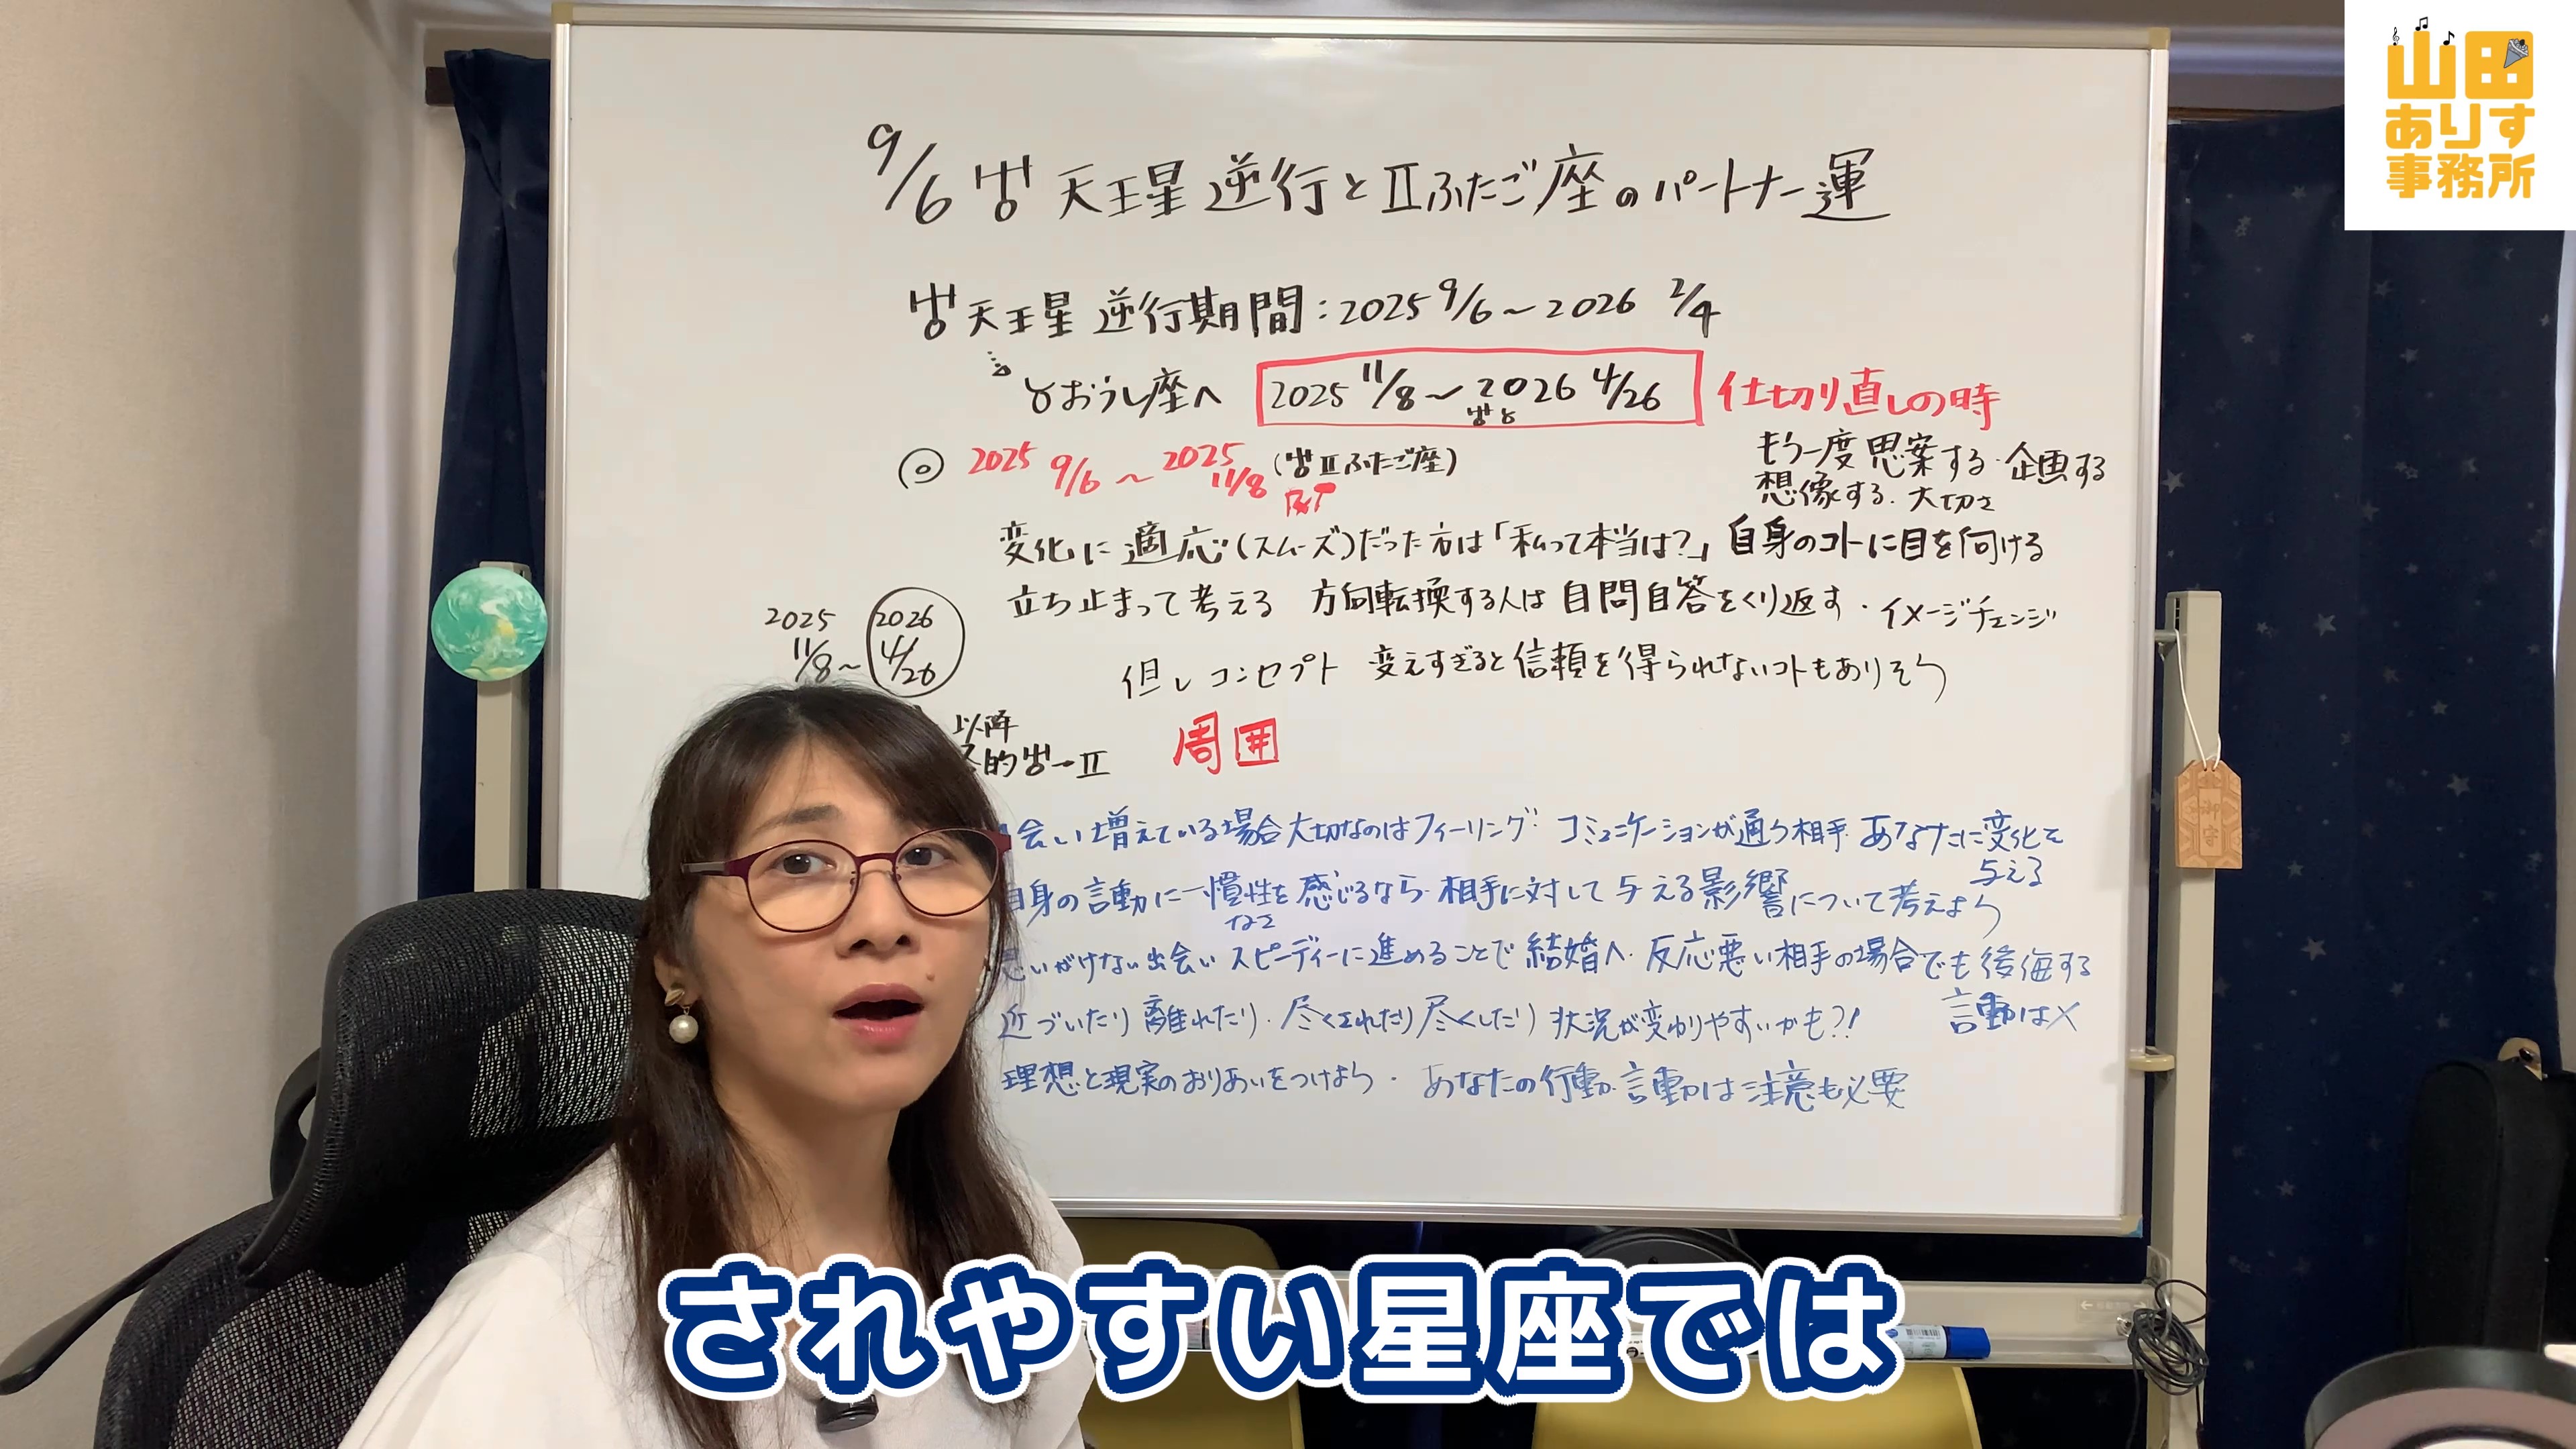 山田
ありす
事務所
9/6 ♅ 天王星 逆行と Ⅱふたご座のパートナー運
♅天王星 逆行期間:2025 9/6～2026 2/4
♉おうし座へ 2025 11/8～2026 4/26 仕切り直しの時
♅♉
もう一度 思案する・企画する
想像する. 大切さ
2025 9/6 ～ 2025 11/8 (♅Ⅱふたご座)
変化に適応(スムーズ)だった方は「私って本当は?」自身のコトに目を向ける
立ち止まって考える 方向転換する人は 自問自答をくり返す・イメージチェンジ
2025 11/8～ 2026 4/26
但し コンセプト 変えすぎると信頼を得られないコトもありそう
以降
的♅→Ⅱ
周囲
会い増えている場合大切なのはフィーリング・コミュニケーションが通う相手 あなたに変化を
与える
自身の言動に一慣性を感じるなら・相手に対して与える影響について考えよう
なさ
思いがけない出会い スピーディーに進めることで結婚へ・反応悪い相手の場合でも後悔する
言動は×
近づいたり離れたり・尽くされたり尽くしたり 状況が変わりやすいかも?!
理想と現実のおりあいをつけよう・あなたの行動・言動は注意も必要
御守
されやすい星座では